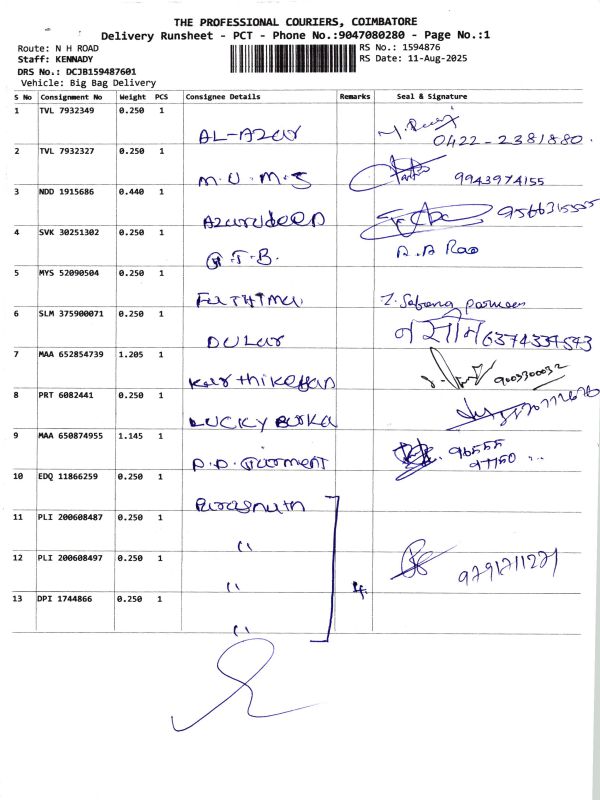 THE PROFESSIONAL COURIERS, COIMBATORE
Delivery Runsheet - PCT - Phone No.:9047080280 - Page No.:1
Route: N H ROAD
RS No.: 1594876
Staff: KENNADY
RS Date: 11-Aug-2025
DRS No.: DCJB159487601
Vehicle: Big Bag Delivery
S No Consignment No Weight PCS Consignee Details Remarks Seal & Signature
1 TVL 7932349 0.250 1
AL-Azar 0422-2381880.
2 TVL 7932327 0.250 1
M.U.M.S 9943974155
3 NDD 1915686 0.440 1
Azarudeen 9566315555
4 SVK 30251302 0.250 1
A.T.B. A.A Rao
5 MYS 52090504 0.250 1
Fathima
6 SLM 375900071 0.250 1
Dular 6374337543
7 MAA 652854739 1.205 1
Karthikeyan 9003300032
8 PRT 6082441 0.250 1
LUCKY
9 MAA 650874955 1.145 1
P.D. Garment 96555
97750 ..
10 EDQ 11866259 0.250 1
Parasnath
11 PLI 200608487 0.250 1
"
12 PLI 200608497 0.250 1
" 4. 9791711271
13 DPI 1744866 0.250 1
"